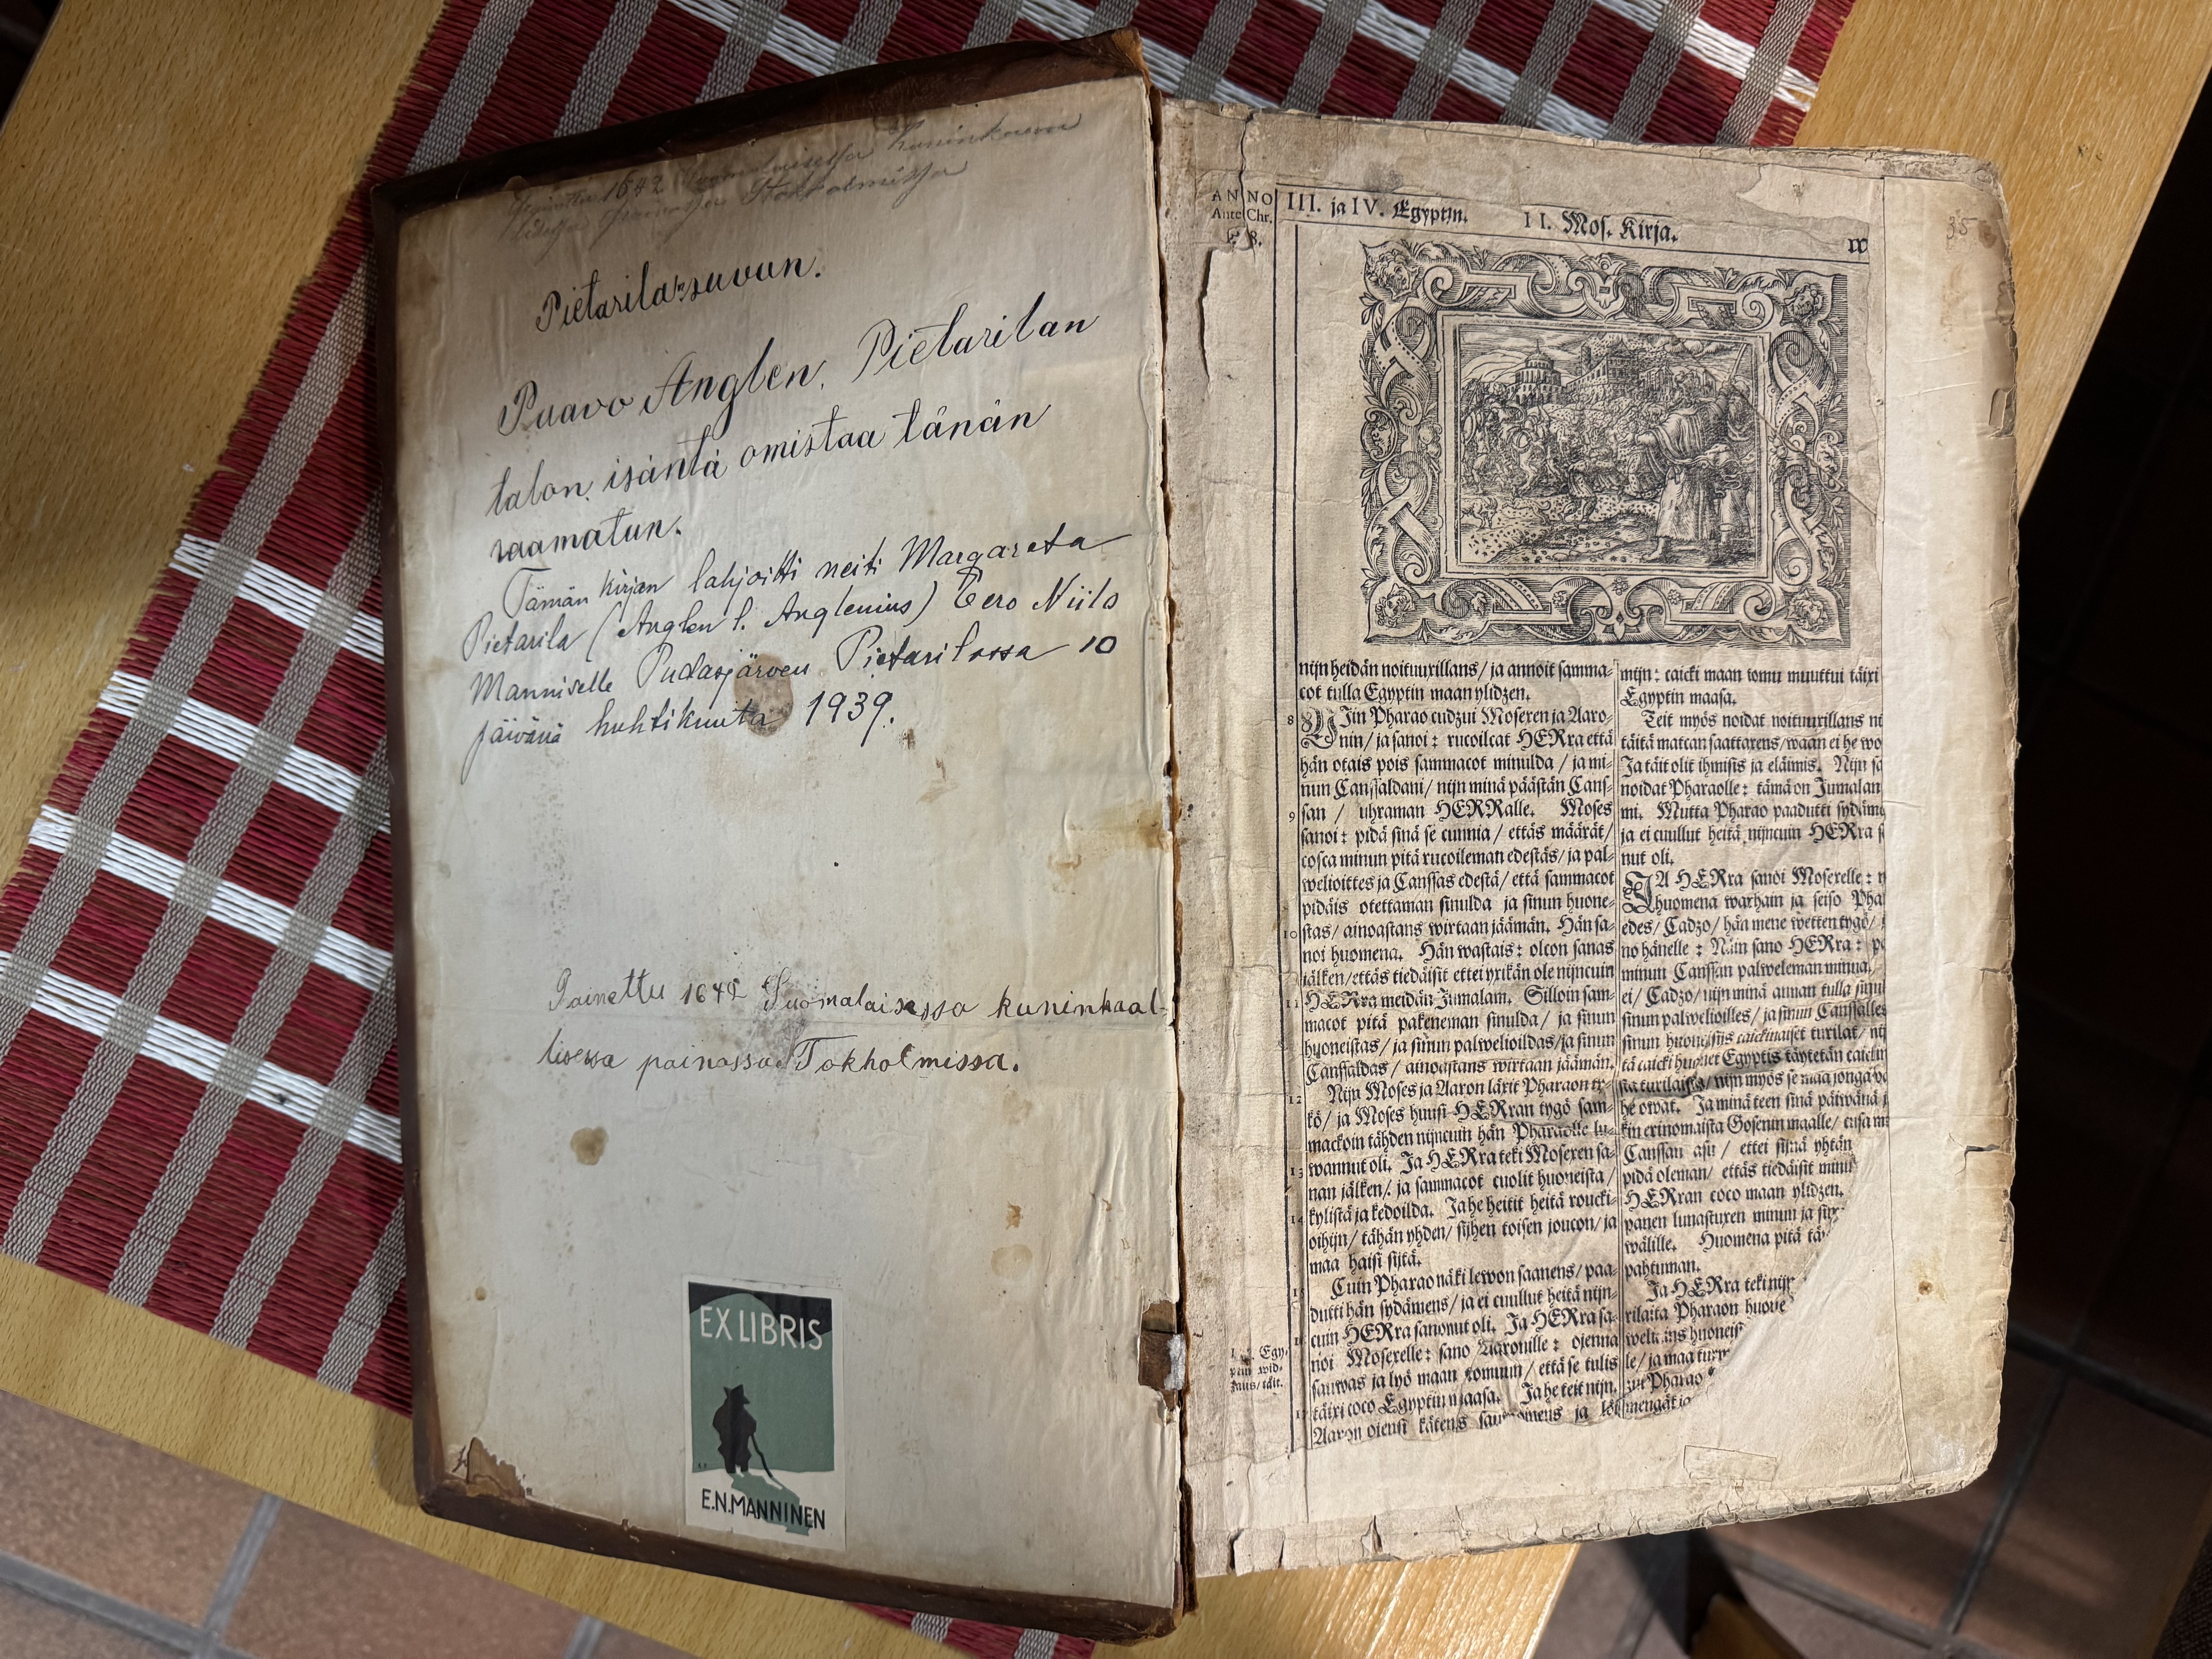 Painettu 1642 Suomalaisessa Kuninkaan
Stokholmissa
Pietarila"suvun.
Paavo Anglen. Pietarilan
talon isäntä omistaa tänän
raamatun.
Tämän kirjan lahjoitti neiti Margareta
Pietarila (Anglen l. Anglenius) Eero Niilo
Manniselle Pudasjärven Pietarilassa 10
päivänä huhtikuuta 1939.
Painettu 1642 Suomalaisessa kuninkaal-
lisessa painossa Tokholmissa.
EX LIBRIS
E.N.MANNINEN
35
ANNO
Ante Chr.
III. ja IV. Egyptin.
II. Mos. Kirja.
nijn heidän noituuxillans / ja annoit samma-
cot tulla Egyptin maan ylidzen.
8
NIin Pharao cudzui Mosexen ja Aaro-
nin / ja sanoi : rucoilcat HERra että
hän otais pois sammacot minulda / ja mi-
nun Canssaldani / nijn minä päästän Cans-
san / uhraman HERRalle. Moses
9
sanoi : pidä sinä se cunnia / ettäs määrät /
cosca minun pitä rucoileman edestäs / ja pal-
welioittes ja Canssas edestä / että sammacot
pidäis otettaman sinulda ja sinun huone-
10
stas / ainoastans wirtaan jäämän. Hän sa-
noi huomena. Hän wastais : olcon sanas
jälken / ettäs tiedäisit ettei yxikän ole nijncuin
11
HERra meidän Jumalam. Silloin sam-
macot pitä pakeneman sinulda / ja sinun
huoneistas / ja sinun palwelioildas / ja sinun
Canssaldas / ainoastans wirtaan jäämän.
12
Nijn Moses ja Aaron läxit Pharaon ty-
kö / ja Moses huusi HERran tygö sam-
mackoin tähden nijncuin hän Pharaolle lu-
13
wannut oli. Ja HERra teki Mosexen sa-
nan jälken / ja sammacot cuolit huoneista /
14
kylistä ja kedoilda. Ja he heitit heitä roucki-
oihijn / tähän yhden / sijhen toisen joucon / ja
maa haisi sijtä.
15
Cuin Pharao näki lewon saanens / paa-
dutti hän sydämens / ja ei cuullut heitä nijn-
16
cuin HERra sanonut oli. Ja HERra sa-
noi Mosexelle : sano Aaronille : ojenna
sauwas ja lyö maan tomuun / että se tulis
17
täixi coco Egyptin maasa. Ja he teit nijn.
Aaron ojensi kätens ja löi
mijn : caicki maan tomu muuttui täixi
Egyptin maasa.
Teit myös noidat noituuxillans
täitä matcan saattaxens / waan ei he
Ja täit olit ihmisis ja eläimis. Nijn
noidat Pharaolle : tämä on Jumalan
mi. Mutta Pharao paadutti
ja ei cuullut heitä nijncuin HERra
nut oli.
JA HERra sanoi Mosexelle :
huomena warhain ja seiso
edes / Cadzo / hän mene wetten tygö /
no hänelle : Näin sano HERra :
minun Canssan palweleman minua.
ei / Cadzo / nijn minä annan tulla
sinun palwelioilles / ja sinun Canssalles
sinun huoneisijs caickinaiset turilat /
tä caicki huonet Egyptis täytetän
sta turilaista / nijn myös se maa jonga
he owat. Ja minä teen sinä päiwänä
kin erinomaista Gosenin maalle / cusa
Canssan asu / ettei sijnä yhtän
pidä oleman / ettäs tiedäisit
HERran coco maan ylidzen.
panen lunastuxen minun ja
wälille. Huomena pitä
pahtuman.
Ja HERra teki
rilaita Pharaon
le / ja maa
Pharao